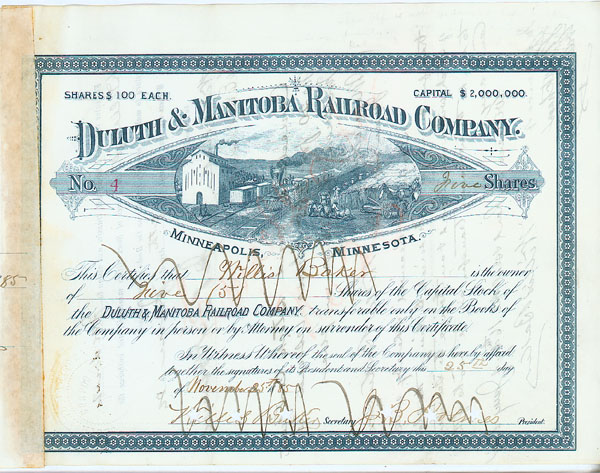 SHARES $ 100 EACH. CAPITAL $ 2,000,000.
DULUTH & MANITOBA RAILROAD COMPANY.
No. 4 Five Shares.
MINNEAPOLIS, MINNESOTA.
This Certifies that Willis Baker is the owner
of Five (5) Shares of the Capital Stock of
the DULUTH & MANITOBA RAILROAD COMPANY, transferable only on the Books of
the Company in person or by Attorney on surrender of this Certificate.
In Witness Whereof the seal of the Company is hereby affixed
together the signatures of its President and Secretary this 25th day
of November
Secretary President.
85